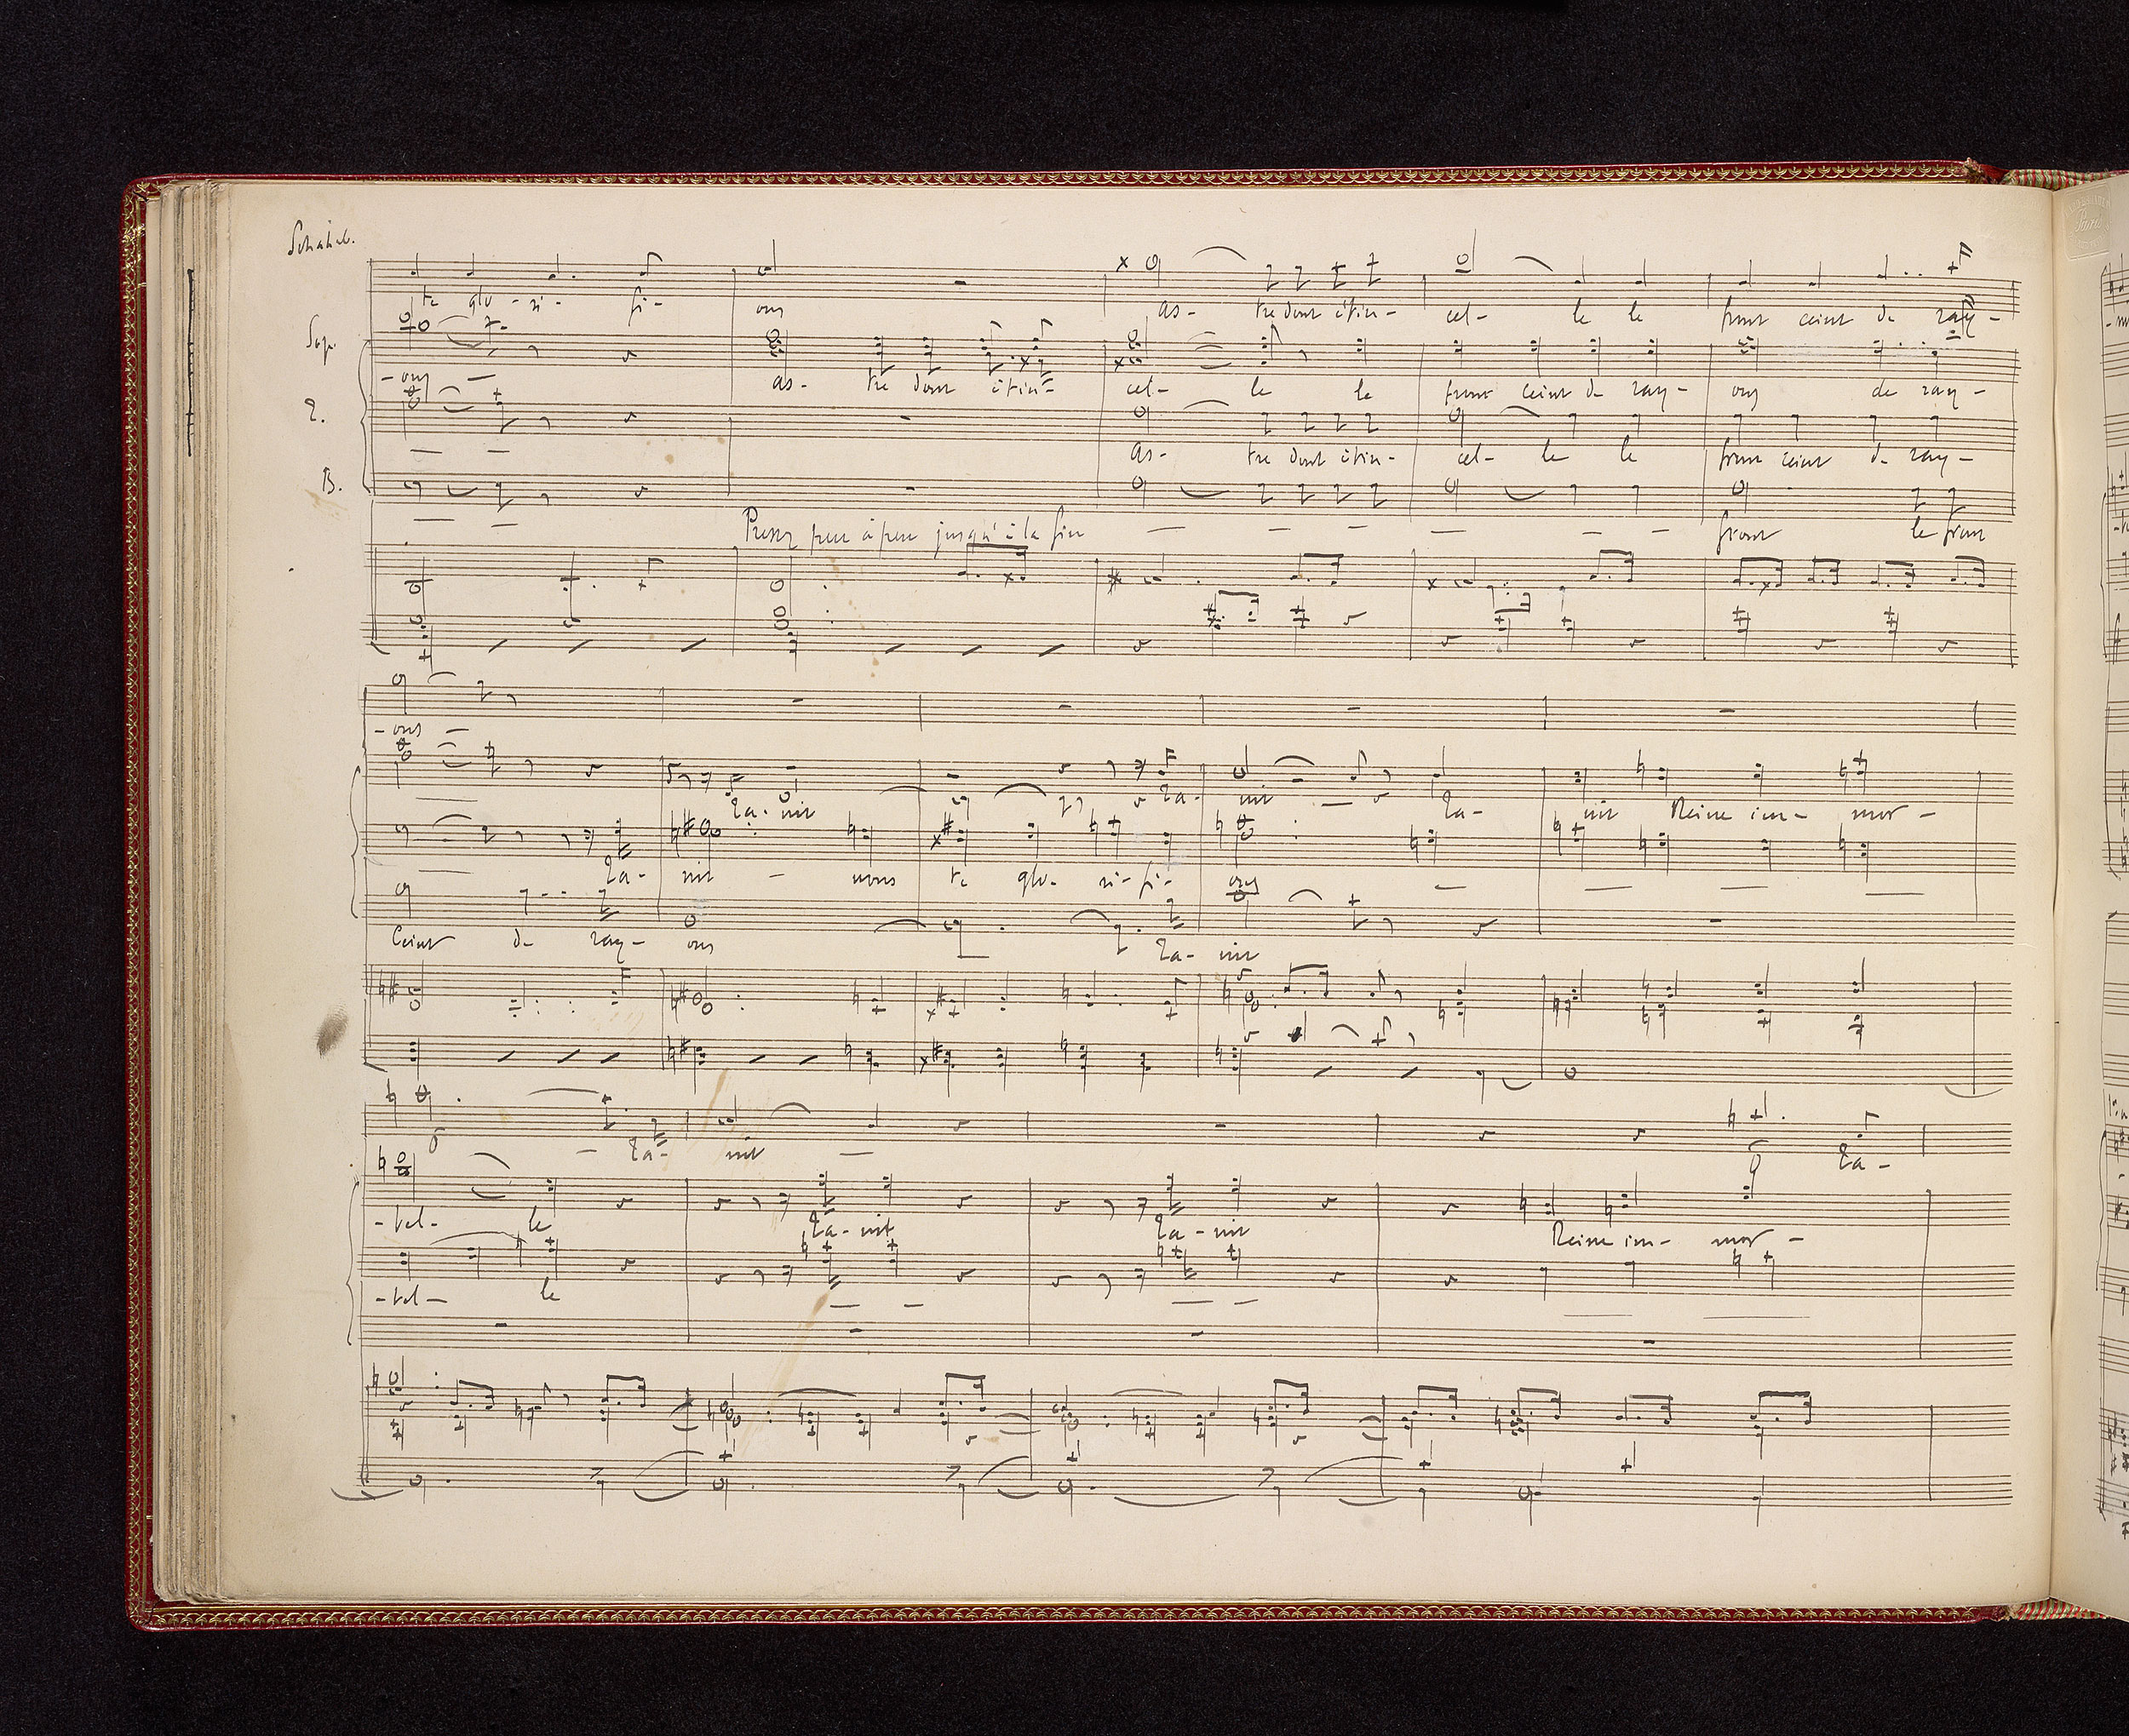 Schahab.
te glo - ri - fi - ons as - tre dont étin - cel - le le front ceint de ray -
Sop.
- ons as - tre dont étin - cel - le le front ceint de ray - ons de ray -
T.
as - tre dont étin - cel - le le front ceint de ray -
B.
front le front
Pressez peu à peu jusqu'à la fin
- ons
Ta - nit Ta - nit Ta - nit Reine im - mor -
Ta - nit - nous te glo - ri - fi - ons
Ceint de ray - ons Ta - nit
Ta - nit Ta -
- tel - le Ta - nit Ta - nit Reine im - mor -
- tel - le